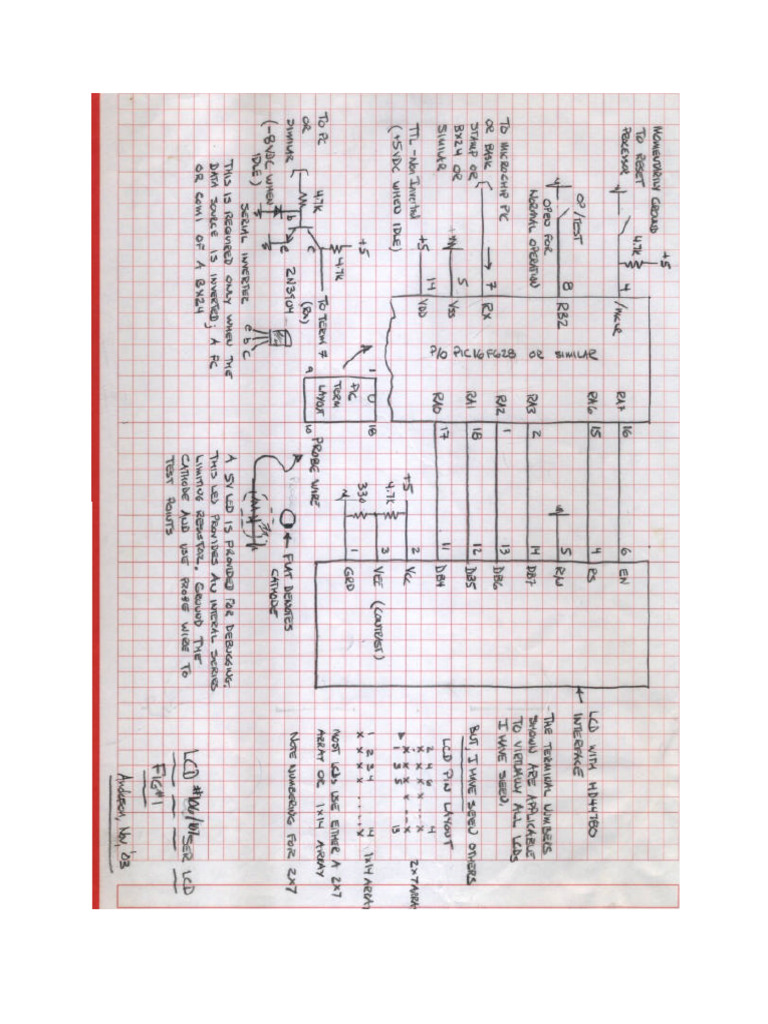 MOMENTARILY GROUND
TO RESET
PROCESSOR
+5
4.7K
4
/MCLR
OP/TEST
OPEN FOR
NORMAL OPERATION
8
RB2
TO MICROCHIP PIC
OR BASIC
STAMP OR
BX24 OR
SIMILAR
7
RX
5
VSS
TTL - NON INVERTING
(+5VDC WHEN IDLE)
+5
14
VDD
P/O PIC16F628 OR SIMILAR
RA7
16
RA6
15
RA3
2
RA2
1
RA1
18
RA0
17
6
EN
4
RS
5
R/W
14
DB7
13
DB6
12
DB5
11
DB4
+5
2
VCC
4.7K
3
VEE (CONTRAST)
330
1
GRD
LCD WITH HD44780
INTERFACE
- THE TERMINAL NUMBERS
SHOWN ARE APPLICABLE
TO VIRTUALLY ALL LCDs
I HAVE SEEN.
BUT, I HAVE SEEN OTHERS
LCD PIN LAYOUT
2 4 6 4
X X X X . . . X
X X X X . . . X
1 3 5 13
2X7 ARRAY
1 2 3 4 14
X X X X . . . . X
1X14 ARRAY
MOST LCDs USE EITHER A 2X7
ARRAY OR 1X14 ARRAY
NOTE NUMBERING FOR 2X7
TO PC
OR
SIMILAR
(-8VDC WHEN
IDLE)
4.7K
b
c
e
+5
4.7K
TO TERM 7
(RX)
2N3904
SERIAL INVERTER
e b c
THIS IS REQUIRED ONLY WHEN THE
DATA SOURCE IS INVERTED; A PC
OR COM1 OF A BX24
1
18
PIC
TERM
LAYOUT
9
10
PROBE WIRE
FLAT DENOTES
CATHODE
A 5V LED IS PROVIDED FOR DEBUGGING.
THIS LED PROVIDES AN INTERAL SERIES
LIMITING RESISTOR. GROUND THE
CATHODE AND USE PROBE WIRE TO
TEST POINTS
LCD #106/107 SER LCD
FIG #1
Anderson, Nov, '03